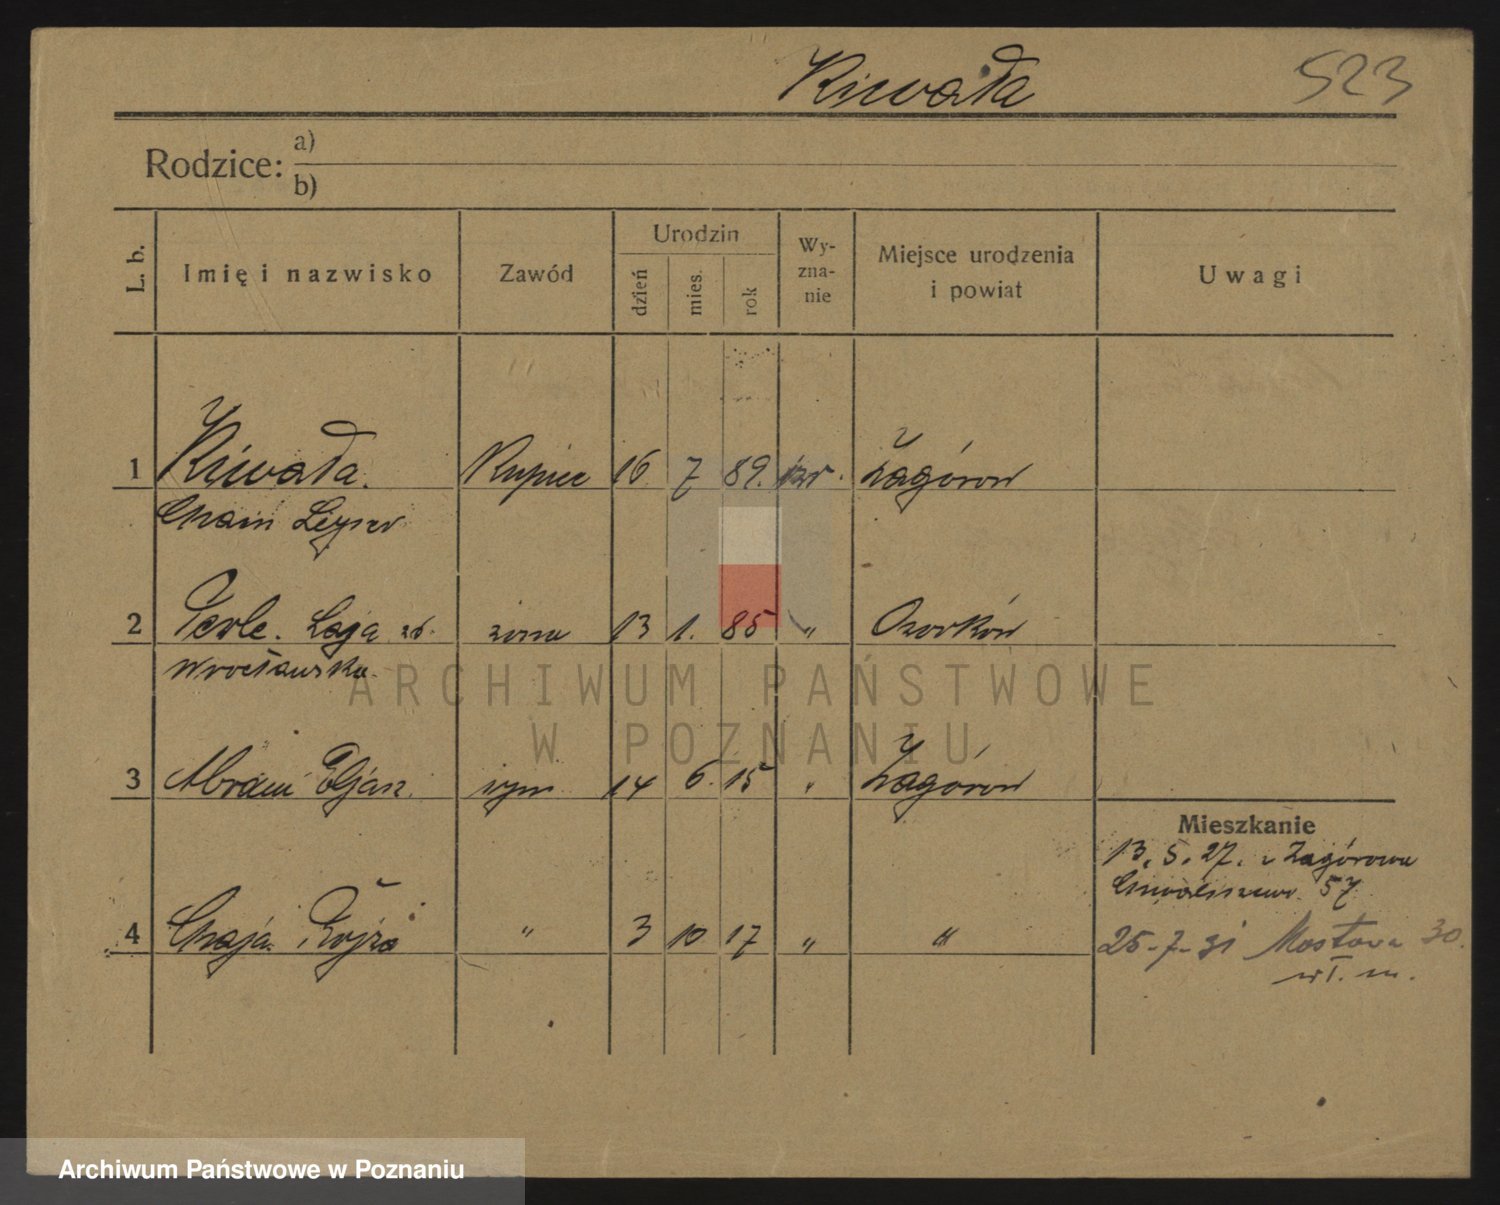 Kiwała 523
Rodzice: a)
b)
L. b. Imię i nazwisko Zawód Urodzin dzień mies. rok Wy-zna-nie Miejsce urodzenia i powiat Uwagi
1 Kiwała. Kupiec 16 7 89. izr. Zagórow
Chaim Lejzer
2 Perle. Laja zd. żona 13 1. 85 " Ozorków
Wrocławska.
3 Abram Eljasz. syn 14 6. 15 " Zagórow
Mieszkanie
13. 5. 27. z Zagórowa
Chwaliszewo 57
4 Chaja Rojza " 3 10 17 " "
25-7-31 Mostowa 30.
wł. m.
ARCHIWUM PAŃSTWOWE
W POZNANIU
Archiwum Państwowe w Poznaniu